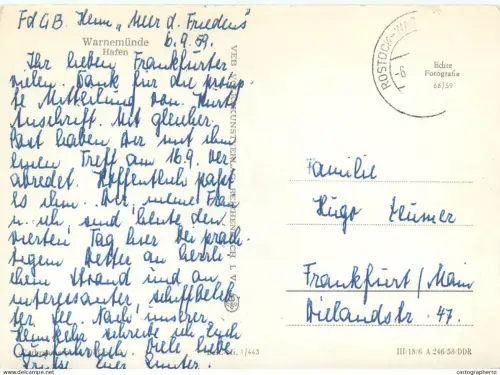 FdGB. Heim „Meer d. Friedens"
Warnemünde
Hafen
6.9.59.
Ihr lieben Frankfurter
vielen Dank für die promp-
te Mitteilung von Kurts
Anschrift. Mit gleicher
Post haben wir mit ihm
einen Treff am 16.9. ver
abredet. Hoffentlich paßt
es ihm. Wir, meine Frau
u. ich, sind heute den
vierten Tag hier bei präch
tigem Wetter an herrli
chem Strand und an
interessanter, schiffbeleb
ter See. Nach unserer
Heimkehr schreibe ich Euch
ausführlich. Viele liebe
Grüße Euer
ROSTOCK-WAR
-6
Echte
Fotografie
66/59
Familie
Hugo
Frankfurt/Main
Wielandstr. 47.
1/443
III/18/6 A 246/58/DDR
cartographeros